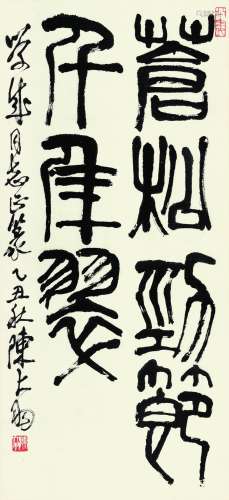 蒼松勁節
千年翠
學成同志正篆乙丑秋陳大羽